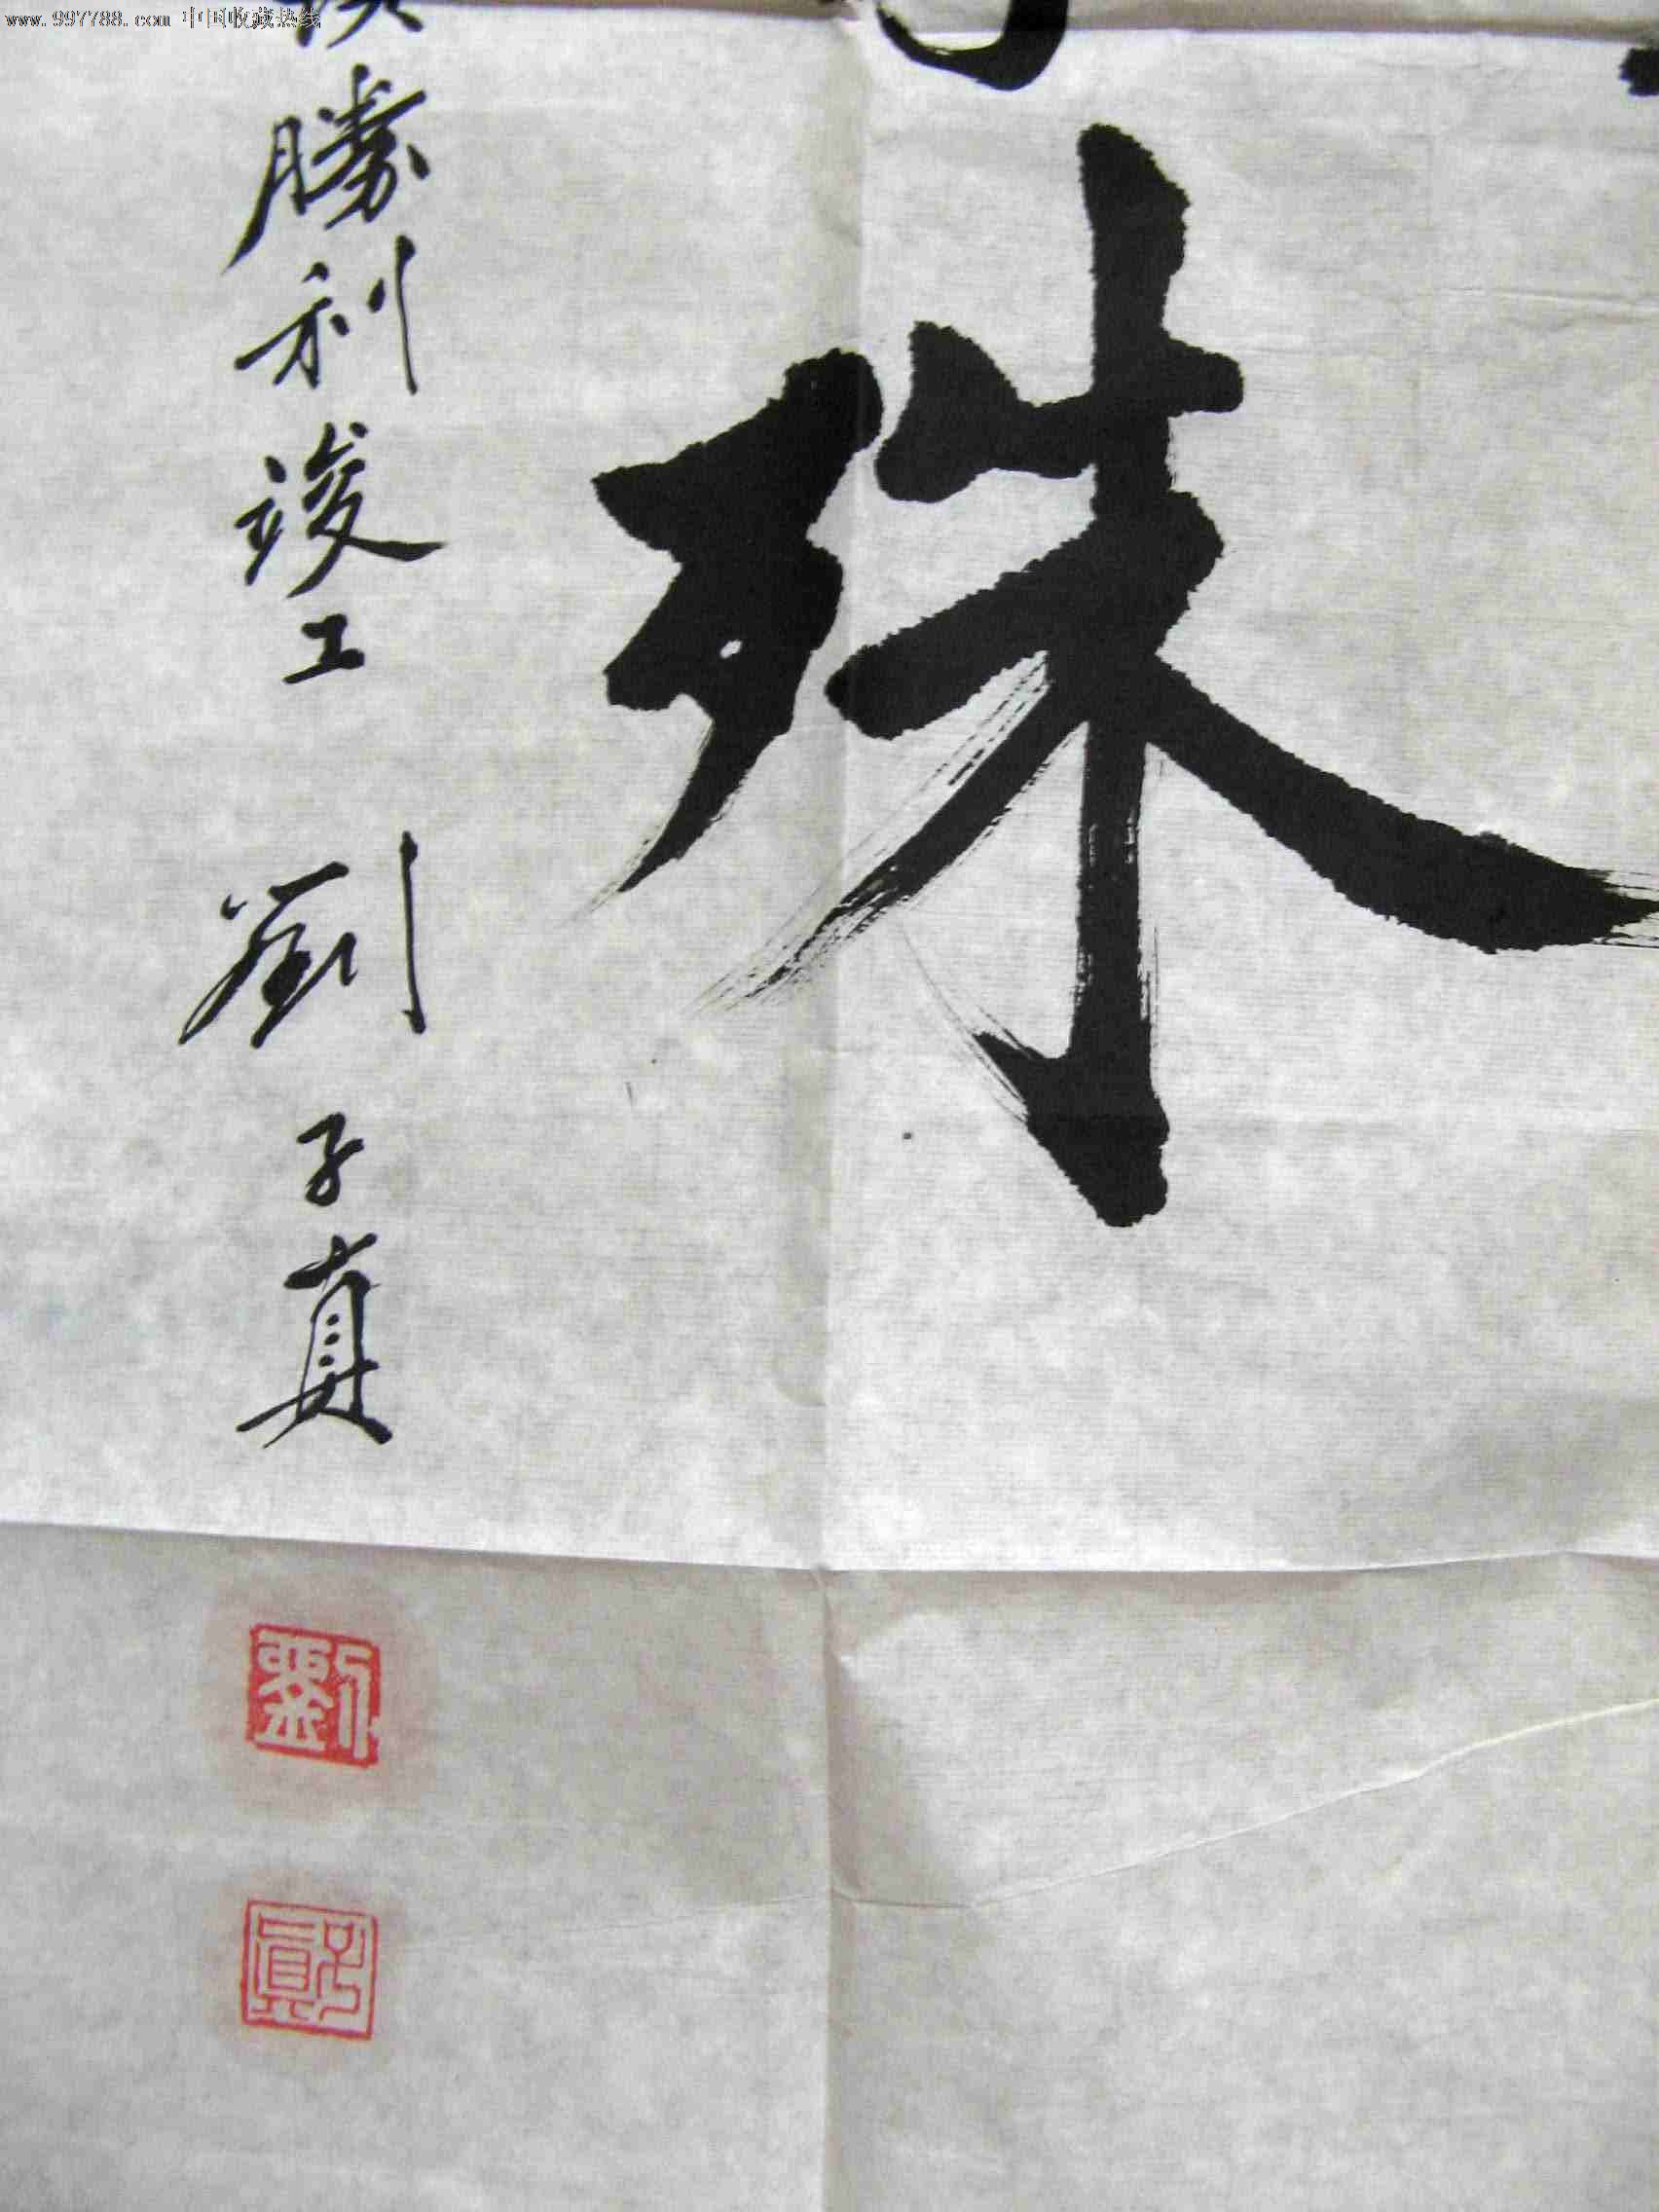 www.997788.com 中国收藏热线
殊
勝利竣工 劉子真
劉
子真